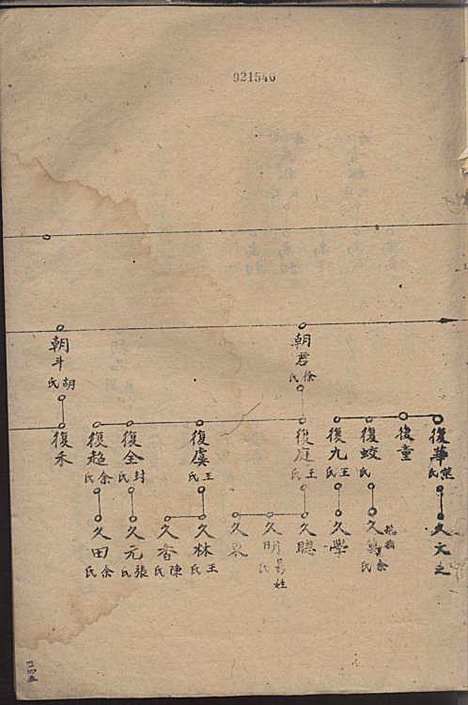 921546
朝君 徐氏
朝斗 胡氏
復華 氏
復童
復蛟 氏
復九 王氏
復庭 王
復虞 王氏
復全 封氏
復超 余氏
復禾
久文之
久 余氏
久學
久聰
久明 氏
久
久林 王氏
久香 陳氏
久元 張氏
久田 余氏